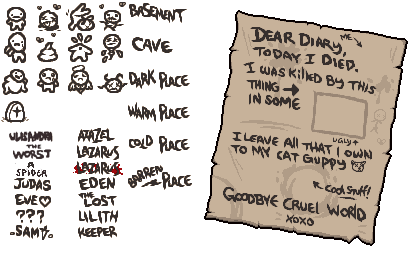 BASEMENT
CAVE
DARK PLACE
WARM PLACE
COLD PLACE
BARREN PLACE
THE
WORST
A
SPIDER
JUDAS
EVE♡
???
-SAM-
AZAZEL
LAZARUS
LAZARUS
EDEN
THE
LOST
LILITH
KEEPER
DEAR DIARY,
TODAY I DIED.
I WAS KILLED BY THIS
THING →
IN SOME
ME
UGLY
I LEAVE ALL THAT I OWN
TO MY CAT GUPPY
← COOL STUFF!
GOODBYE CRUEL WORLD
XOXO